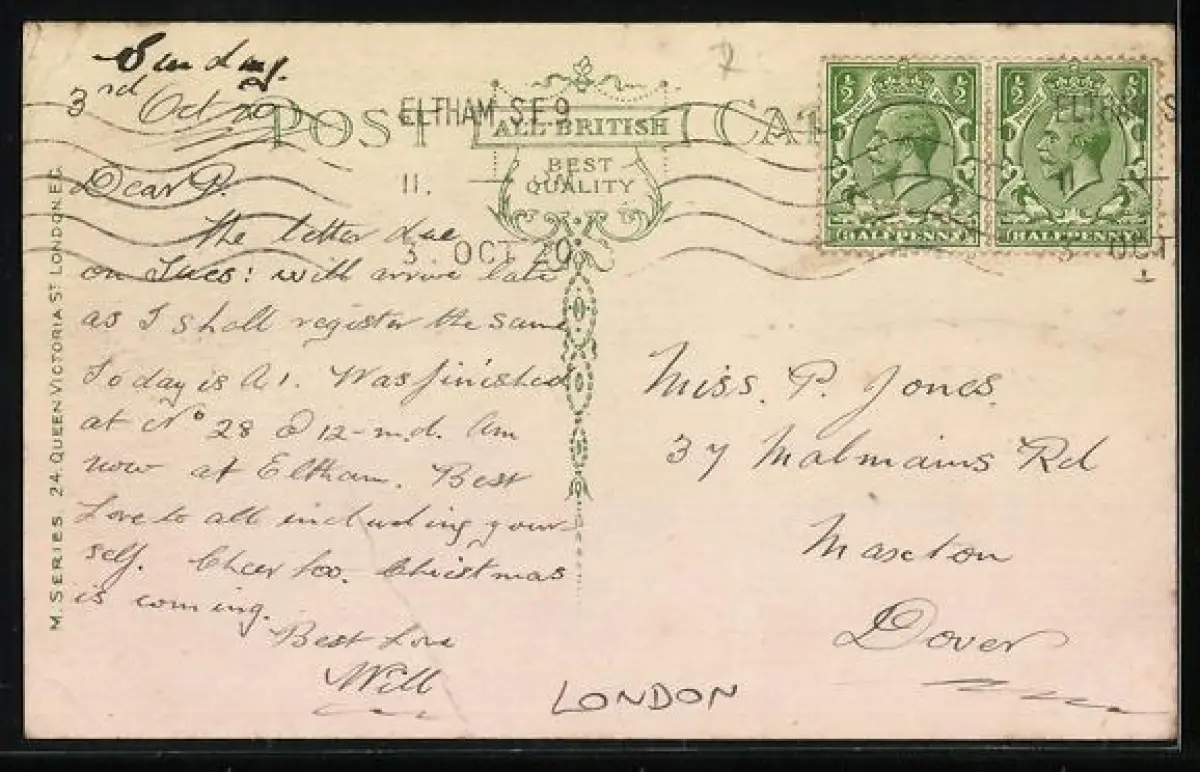 Sunday.
3rd Oct 20
POST CA
ALL BRITISH
BEST
QUALITY
ELTHAM. S.E.9
11.
3. OCT 20
½ ½
HALFPENNY
½ ½
HALFPENNY
ELTHAM S
3 OCT
Dear P.
The letter due
on Tues: will arrive late
as I shall register the same
Today is A1. Was finished
at No 28 @ 12-m.d. Am
now at Eltham. Best
Love to all including your-
self. Cheer too. Christmas
is coming.
Best Love
Will
Miss. P. Jones.
37 Malmains Rd
Maxton
Dover
LONDON
M. SERIES. 24. QUEEN VICTORIA ST. LONDON E.C.